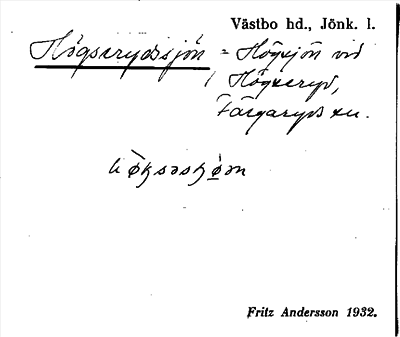 Västbo hd., Jönk. l.
Högserydssjön = Högsjön vid
Högseryd,
Färgaryds sn.
Fritz Andersson 1932.